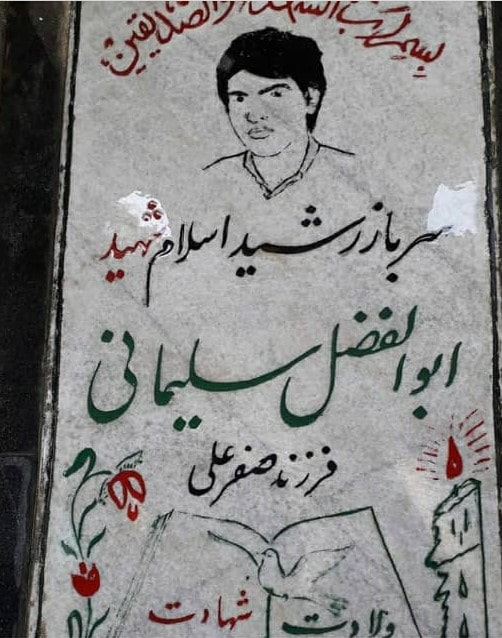 بسم رب الشهداء والصدیقین
سرباز رشید اسلام شهید
ابوالفضل سلیمانی
فرزند صفرعلی
ولادت شهادت